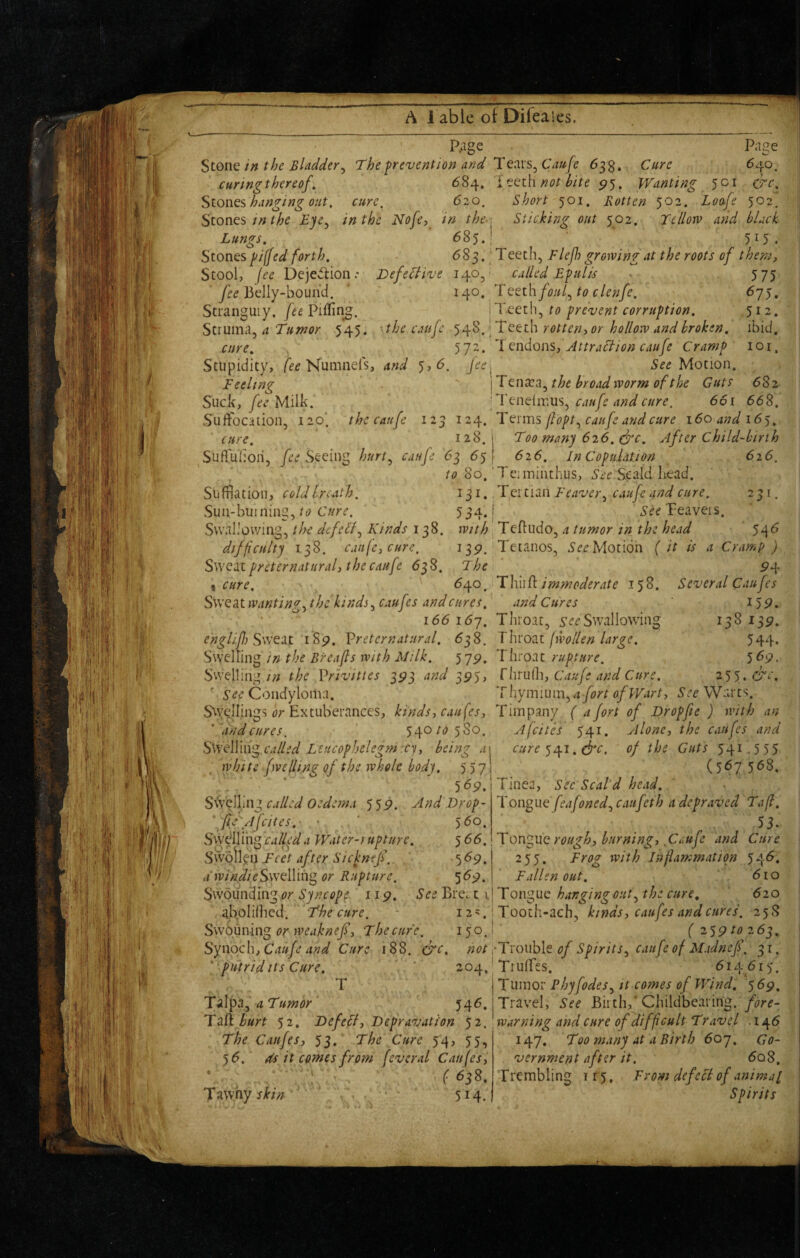 A Table of Diseases.
Page
Stone in the Bladder, The prevention and
curing thereof. 684.
Stones hanging out. cure. 620.
Stones in the Eye, in the Nose, in the
Lungs. 685.
Stones pissed forth. 683.
Stool, see Dejection: Defective 140,
see Belly-bound. 140.
Stranguiy. see Pissing.
Struma, a Tumor 545. the cause 548.
cure. 572.
Stupidity, see Numness, and 5, 6. see
Feeling
Suck, see Milk.
Suffocation, 120. the cause 123 124.
cure. 128.
Suffusion, see Seeing hurt, cause 63 65
to 80.
Sufflation, cold breath. 131.
Sun-burning, to Cure. 534.
Swallowing, the defect, Kinds 138. with
difficulty 138. cause, cure. 139.
Sweat preternatural, the cause 638. The
cure. 640.
Sweat wanting, the kinds, causes and cures.
166 167.
english Sweat 189. Preternatural. 638.
Swelling in the Breasts with Milk. 579.
Swelling in the Privittes 393 and 395,
See Condyloma.
Swellings or Extuberances, kinds, causes,
and cures. 540 to 580.
Swelling called Leucophelegmacy, being a
white swelling of the whole body. 557
569.
Swelling called Oedema 559. And Drop-
sie Ascites. 560.
Swelling called a Water-rupture. 566.
Swollen Feet after Sickness. 569.
a windie Swelling or Rupture. 569.
Swounding or Syncope 119. See Breath
abolished. The cure. 125.
Swouning or weakness, The cure. 150.
Synoch, Cause and Cure 188. &c. not
putrid its Cure. 204,
T
Talpa, a Tumor 546.
Tast hurt 52. Defect, Depravation 52.
The Causes, 53. The Cure 54, 55,
56. as it comes from several Causes,
( 638.
Tawny skin 514.
Page
Tears, Cause 638. Cure 640.
Teeth not bite 95. Wanting 501 &c.
Short 501. Rotten 502. Loose 502.
Sticking out 502. Yellow and black
515.
Teeth, Flesh growing at the roots of them,
called Epulis 575
Teeth foul, to clense. 675.
Teeth, to prevent corruption. 512.
Teeth rotten, or hollow and broken. ibid.
Tendons, Attraction cause Cramp 101.
See Motion.
Tenæa, the broad worm of the Guts 682
Tenesmus, cause and cure. 661 668.
Terms stopt, cause and cure 160 and 165.
Too many 626. &c. After Child-birth
626. In Copulation 626.
Terminthus, See Scald head.
Tertian Feaver, cause and cure. 231.
See Feavers.
Testudo, a tumor in the head 546
Tetanos, See Motion ( it is a Cramp )
94
Thirst immoderate 158. Several Causes
and Cures 159.
Throat, see Swallowing 138 139.
Throat swollen large. 544.
Throat rupture. 569.
Thrush, Cause and Cure. 255. &c.
Thymium, a sort of Wart, See Warts.
Timpany ( a sort of Dropsie ) with an
Ascites 541. Alone, the causes and
cure 541. &c. of the Guts 541.555
(567 568.
Tinea, See Scal'd head.
Tongue seasoned, causeth a depraved Tast.
53.
Tongue rough, burning, Cause and Cure
255. Frog with Inflammation 546.
Fallen out. 610
Tongue hanging out, the cure. 620
Tooth-ach, kinds, causes and cures. 258
( 259 to 263.
Trouble of Spirits, cause of Madness. 31.
Trusses. 614 615.
Tumor Physodes, it comes of Wind. 569.
Travel, See Birth, Childbearing. fore-
warning and cure of difficult Travel 146
147. Too many at a Birth 607. Go-
vernment after it. 608.
Trembling 115. From defect of animal
Spirits